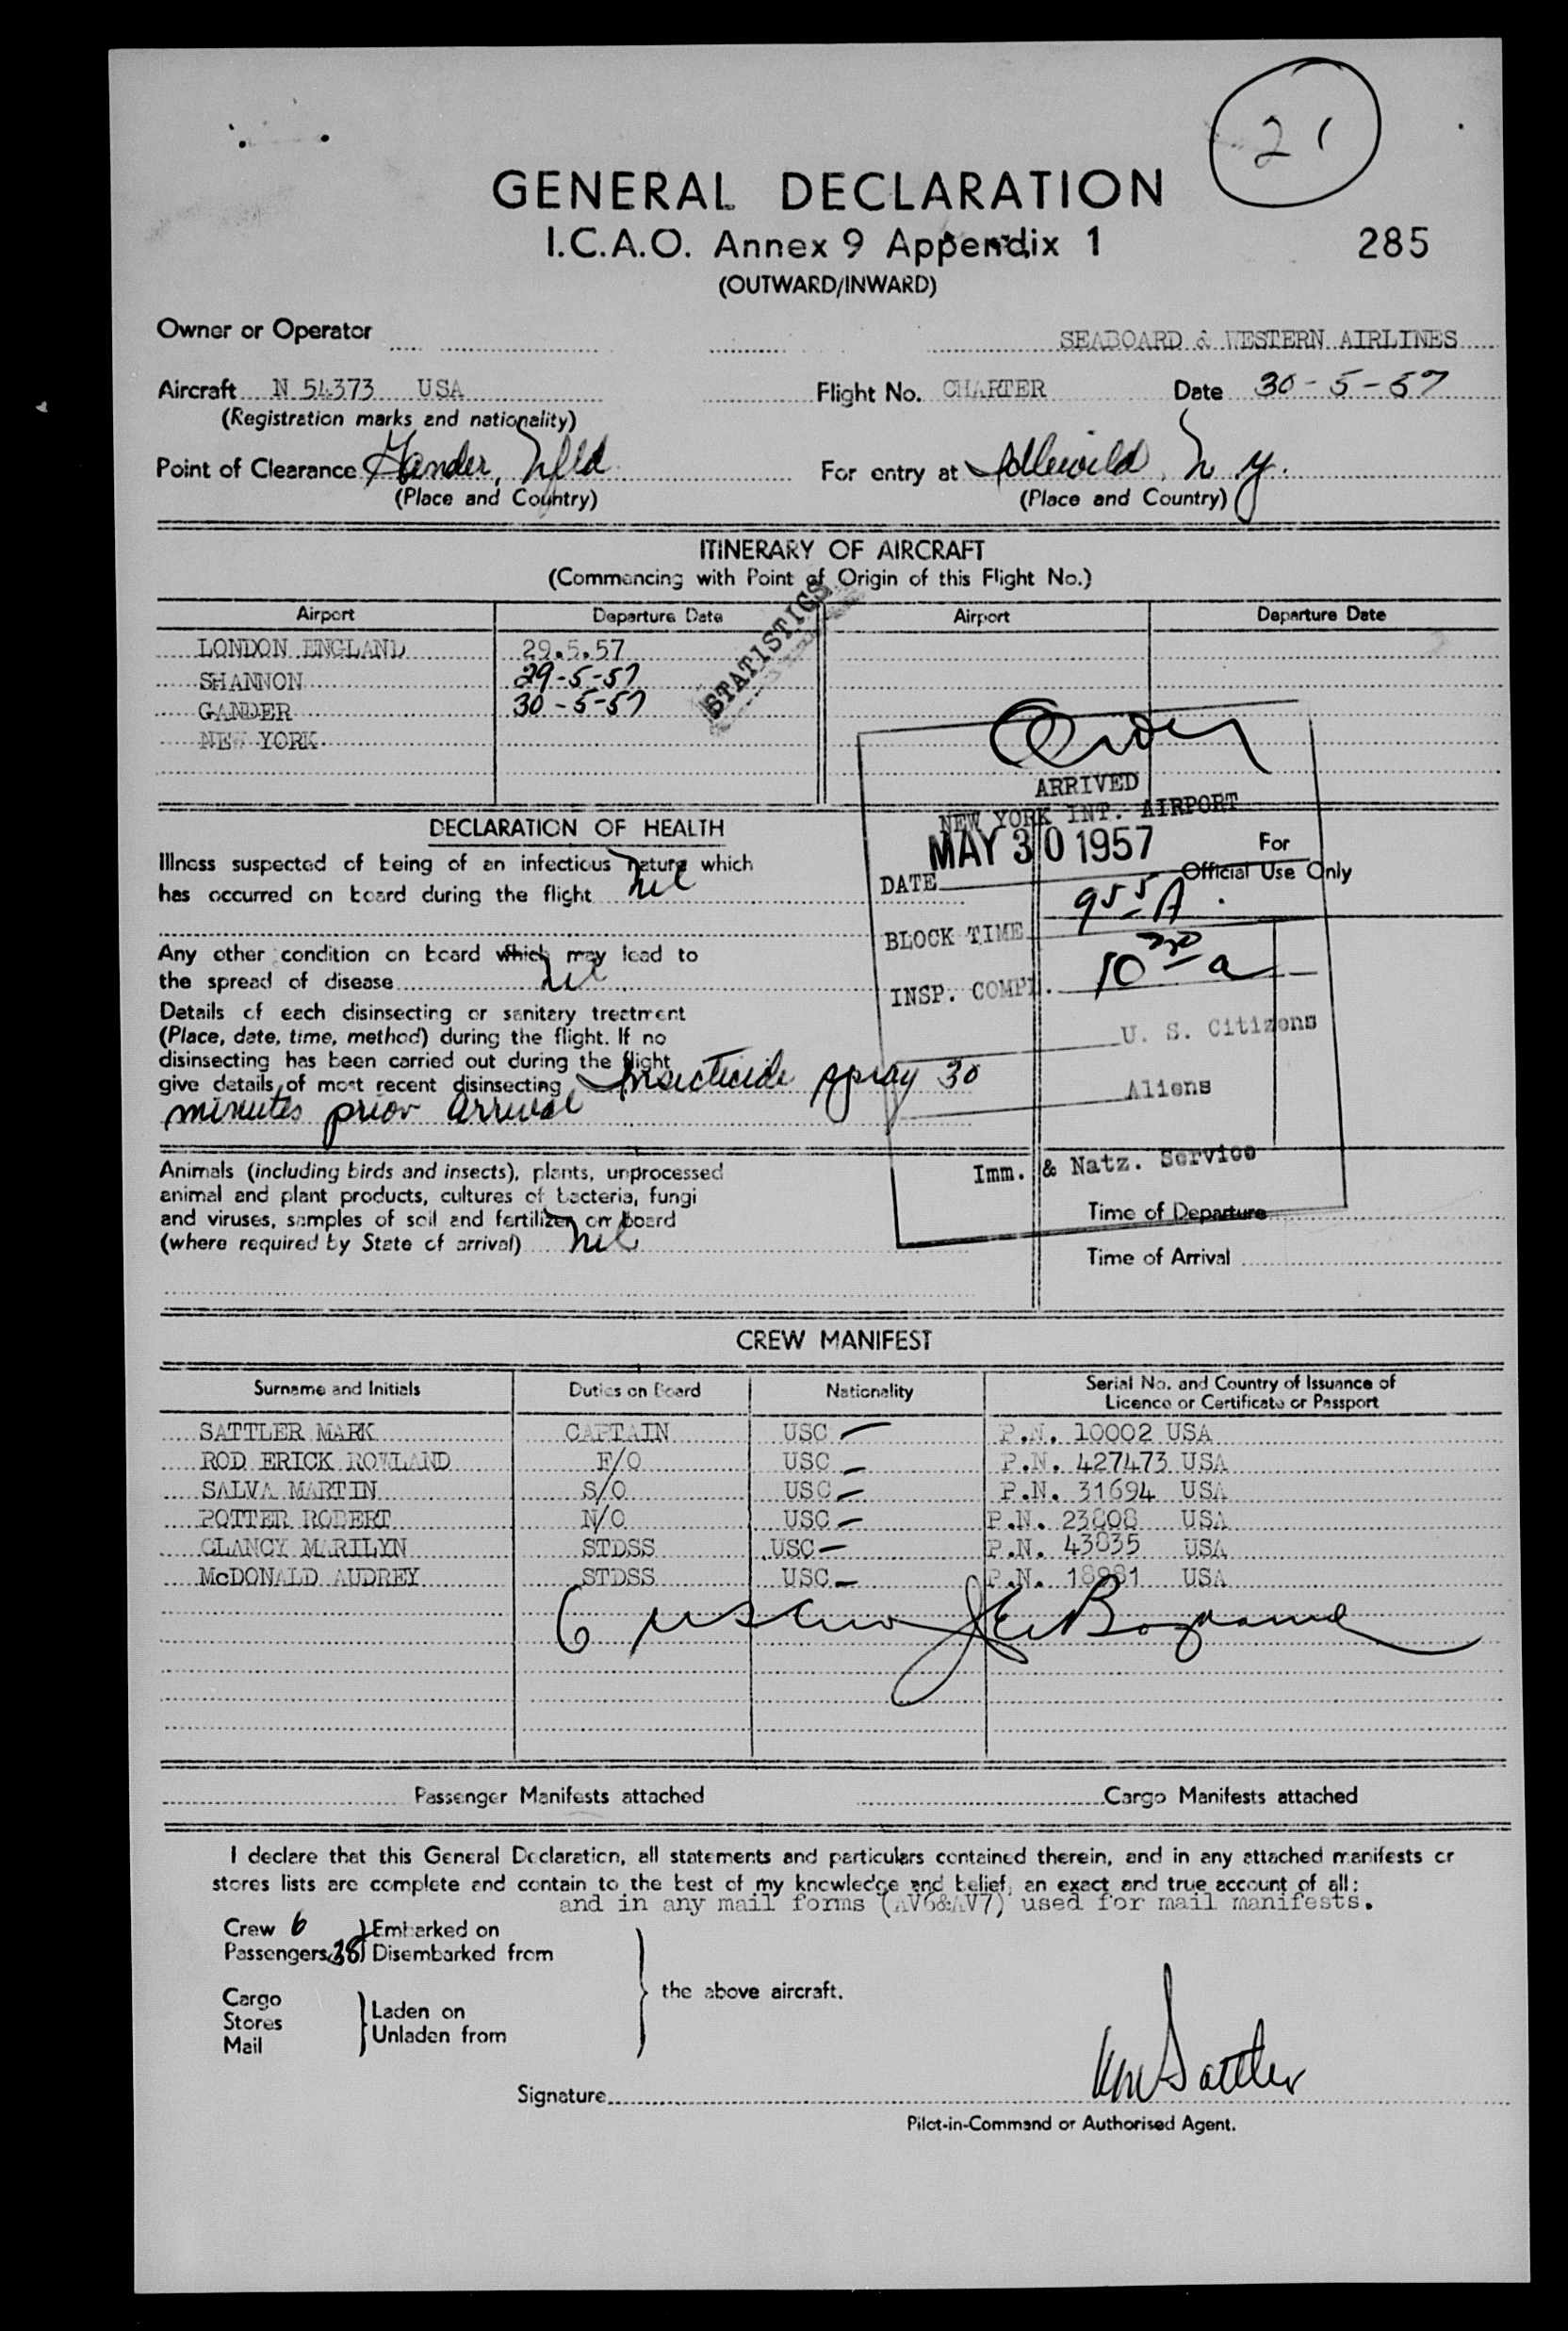 21
GENERAL DECLARATION
I.C.A.O. Annex 9 Appendix 1
285
(OUTWARD/INWARD)
Owner or Operator SEABOARD & WESTERN AIRLINES
Aircraft N 54373 USA Flight No. CHARTER Date 30-5-57
(Registration marks and nationality)
Point of Clearance Gander, Nfld. For entry at Idlewild, N.Y.
(Place and Country) (Place and Country)
ITINERARY OF AIRCRAFT
(Commencing with Point of Origin of this Flight No.)
Airport Departure Date Airport Departure Date
LONDON ENGLAND 29.5.57
SHANNON 29-5-57
GANDER 30-5-57
NEW YORK
STATISTICS
ARRIVED
NEW YORK INT. AIRPORT
MAY 30 1957
DATE
BLOCK TIME 9 55 A.
INSP. COMPL. 10 30 a
U. S. Citizens
Aliens
Imm. & Natz. Service
For
Official Use Only
DECLARATION OF HEALTH
Illness suspected of being of an infectious nature which
has occurred on board during the flight nil
Any other condition on board which may lead to
the spread of disease nil
Details of each disinsecting or sanitary treatment
(Place, date, time, method) during the flight. If no
disinsecting has been carried out during the flight
give details of most recent disinsecting Insecticide spray 30
minutes prior arrival
Animals (including birds and insects), plants, unprocessed
animal and plant products, cultures of bacteria, fungi
and viruses, samples of soil and fertilizer on board
(where required by State of arrival) nil
Time of Departure
Time of Arrival
CREW MANIFEST
Surname and Initials Duties on Board Nationality Serial No. and Country of Issuance of
Licence or Certificate or Passport
SATTLER MARK CAPTAIN USC P.N. 10002 USA
ROD ERICK ROWLAND F/O USC P.N. 427473 USA
SALVA MARTIN S/O USC P.N. 31694 USA
POTTER ROBERT N/O USC P.N. 23808 USA
CLANCY MARILYN STDSS USC P.N. 43835 USA
McDONALD AUDREY STDSS USC P.N. 18981 USA
6
Passenger Manifests attached Cargo Manifests attached
I declare that this General Declaration, all statements and particulars contained therein, and in any attached manifests or
stores lists are complete and contain to the best of my knowledge and belief, an exact and true account of all:
and in any mail forms (AV6&AV7) used for mail manifests.
Crew 6 Embarked on
Passengers 38 Disembarked from
the above aircraft.
Cargo
Stores
Mail
Laden on
Unladen from
Signature Sattler
Pilot-in-Command or Authorised Agent.